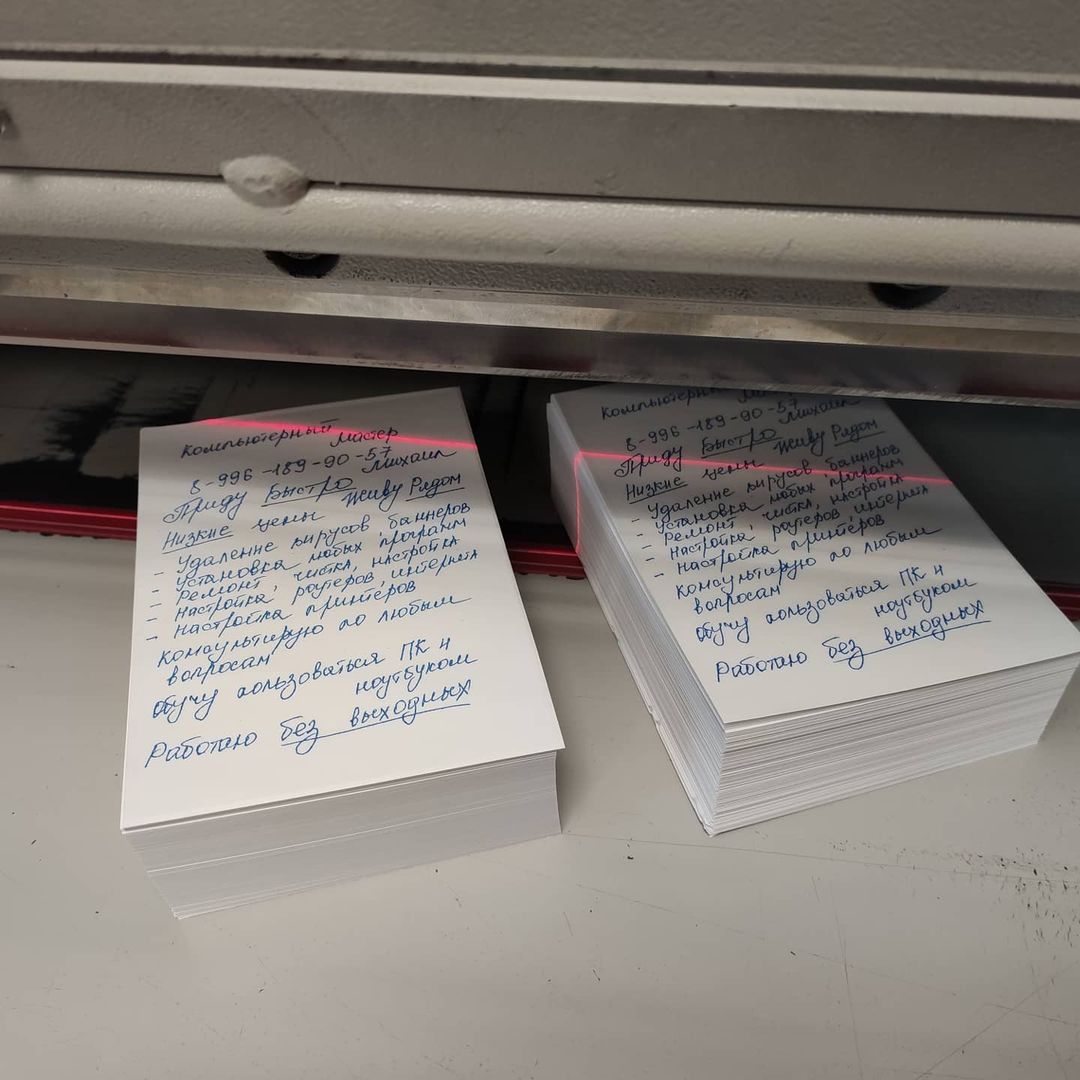 Компьютерный мастер
8-996-189-90-57
Приду Быстро Михаил
Низкие цены Живу Рядом
- Удаление вирусов баннеров
- Установка любых программ
- Ремонт, чистка, настройка
- Настройка, роутеров, интернета
- настройка принтеров
консультирую по любым
вопросам
обучу пользоваться ПК и
ноутбуком
Работаю без выходных
Компьютерный
8-996-189-90-57
Приду Быстро Михаил
Низкие цены Живу Рядом
- Удаление вирусов баннеров
- Установка любых программ
- Ремонт, чистка, настройка
- Настройка роутеров, интернета
- настройка принтеров
консультирую по любым
вопросам
обучу пользоваться ПК и
ноутбуком
Работаю без выходных